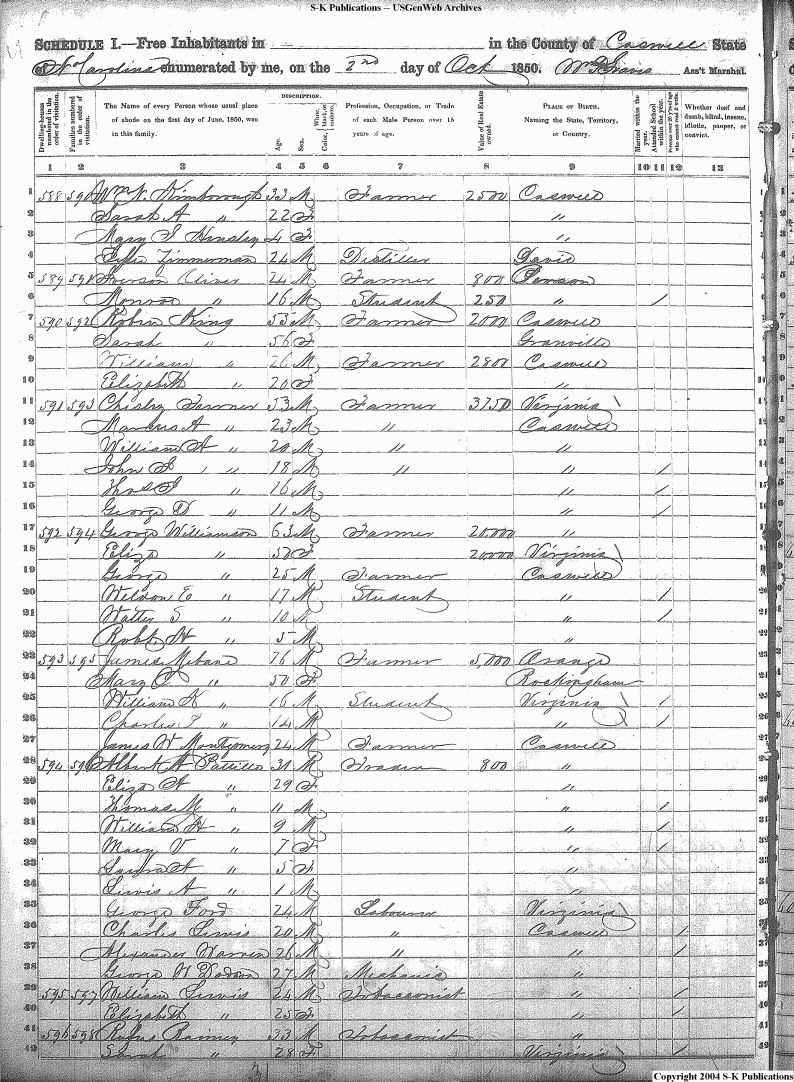 S-K Publications -- USGenWeb Archives
SCHEDULE I.—Free Inhabitants in in the County of Caswell State
of N Carolina enumerated by me, on the 2nd day of Oct 1850. Ass't Marshal.
Dwelling-houses numbered in the order of visitation.
Families numbered in the order of visitation.
The Name of every Person whose usual place of abode on the first day of June, 1850, was in this family.
DESCRIPTION.
Age.
Sex.
White, black, or mulatto.
Color,
Profession, Occupation, or Trade of each Male Person over 15 years of age.
Value of Real Estate owned.
PLACE OF BIRTH. Naming the State, Territory, or Country.
Married within the year.
Attended School within the year.
Persons over 20 y'rs of age who cannot read & write.
Whether deaf and dumb, blind, insane, idiotic, pauper, or convict.
1 2 3 4 5 6 7 8 9 10 11 12 13
1 588 590 Wm N. Kimbrough 33 M Farmer 2500 Caswell 1
2 Sarah A " 22 F " 2
3 Mary S Hensley 4 F " 3
4 Zimmerman 24 M Distiller Davie 4
5 589 591 Iverson Oliver 24 M Farmer 800 Person 5
6 Monroe " 16 M Student 250 " / 6
7 590 592 Robin King 53 M Farmer 2000 Caswell 7
8 Sarah " 56 F Granville 8
9 William 26 M Farmer 2800 Caswell 9
10 Elizabeth " 20 F " 10
11 591 593 Chisley Farmer 53 M Farmer 3750 Virginia 11
12 Marcus A " 23 M " Caswell 12
13 William A " 20 M " " 13
14 John S " 18 M " " / 14
15 Thos S " 16 M " / 15
16 George D " 11 M " / 16
17 592 594 George Williamson 63 M Farmer 20,000 " 17
18 Eliza " 50 F 20000 Virginia 18
19 George " 25 M Farmer Caswell 19
20 Weldon E " 17 M Student " / 20
21 Walter S " 10 M " / 21
22 Robt H " 5 M " 22
23 593 595 James Mebane 76 M Farmer 5,000 Orange 23
24 Mary C " 50 F Rockingham 24
25 William K " 16 M Student Virginia / 25
26 Charles F " 14 M " / 26
27 James W Montgomery 24 M Farmer Caswell 27
28 594 596 Albert A Pattillo 31 M Trader 800 " 28
29 Eliza A " 29 F " 29
30 Thomas M " 11 M " / 30
31 William H " 9 M " / 31
32 Mary V " 7 F " / 32
33 A " 5 F " 33
34 Lewis A " 1 M " 34
35 George Ford 24 M Labourer Virginia 35
36 Charles Lewis 20 M " Caswell / 36
37 Alexander Warren 26 M " " / 37
38 George W Dodson 27 M Mechanic " 38
39 595 597 William Lewis 24 M Tobacconist " / 39
40 Elizabeth " 25 F " / 40
41 596 598 Rufus Rainey 33 M Tobacconist " 41
42 Sarah " 28 F Virginia / 42
Copyright 2004 S-K Publications